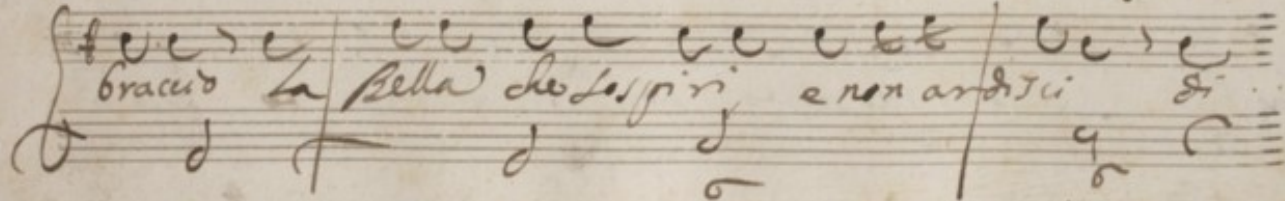 braccio La Bella che sospiri e non ardisci di